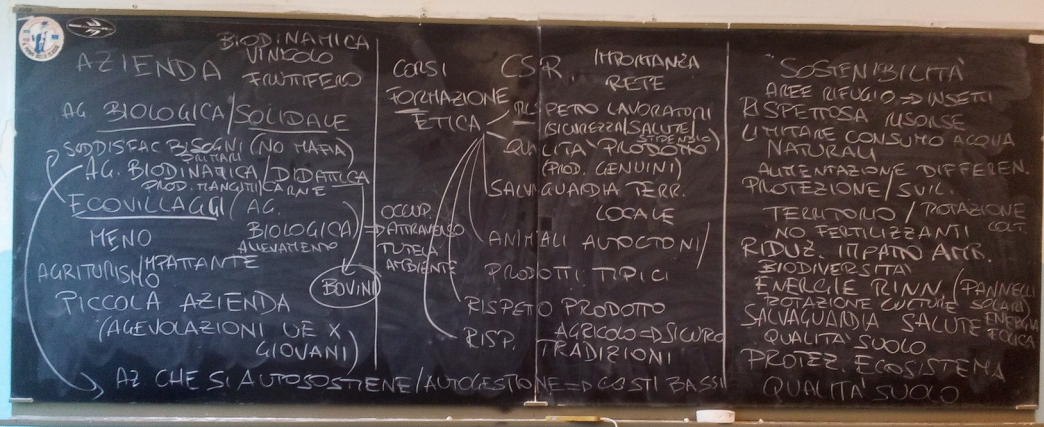 AZIENDA
BIODINAMICA
VINCOLO
FRUTTIFERO
AG BIOLOGICA/SOLIDALE
SODDISFAC BISOGNI (NO MAFIA)
PRIMARI
AG. BIODINAMICA/DIDATTICA
PROD. MANGIMI/CARNE
ECOVILLAGGI (AG.
BIOLOGICA) =>
MENO
ALLEVAMENTO
IMPATTANTE
AGRITURISMO
BOVINI
PICCOLA AZIENDA
(AGEVOLAZIONI UE X
GIOVANI)
AZ. CHE SI AUTOSOSTIENE/AUTOGESTIONE => COSTI BASSI
CORSI
FORMAZIONE
ETICA
OCCUP.
ATTRAVERSO
TUTELA
AMBIENTE
CSR.
IMPORTANZA
RETE
RISPETTO LAVORATORI
(SICUREZZA/SALUTE/
STIPENDIO)
QUALITA' PRODOTTO
(PROD. GENUINI)
SALVAGUARDIA TERR.
LOCALE
ANIMALI AUTOCTONI/
PRODOTTI TIPICI
RISPETTO PRODOTTO
AGRICOLO => SICURO
RISP. TRADIZIONI
SOSTENIBILITA'
AREE RIFUGIO => INSETTI
RISPETTOSA RISORSE
LIMITARE CONSUMO ACQUA
NATURALI
ALIMENTAZIONE DIFFEREN.
PROTEZIONE/SVIL.
TERRITORIO/ROTAZIONE
COLT.
NO FERTILIZZANTI
RIDUZ. IMPATTO AMB.
BIODIVERSITA'
ENERGIE RINN/PANNELLI
SOLARI/
ROTAZIONE CULTURE
ENERGIA
EOLICA
SALVAGUARDIA SALUTE
QUALITA' SUOLO
PROTEZ. ECOSISTEMA
QUALITA' SUOLO